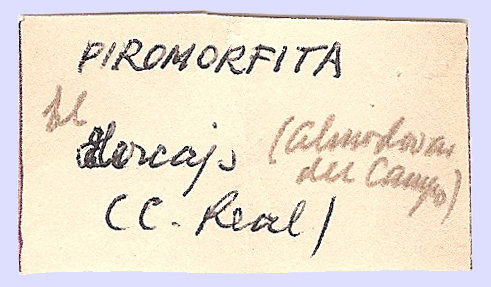 PIROMORFITA
El Horcajo (Almodovar
del Campo)
(C. Real)